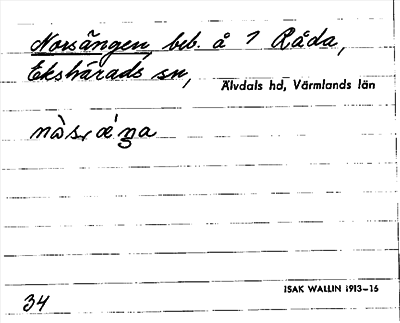 Norsängen, beb. å 1 Råda,
Ekshärads sn,
Älvdals hd, Värmlands län
ISAK WALLIN 1913-15
34